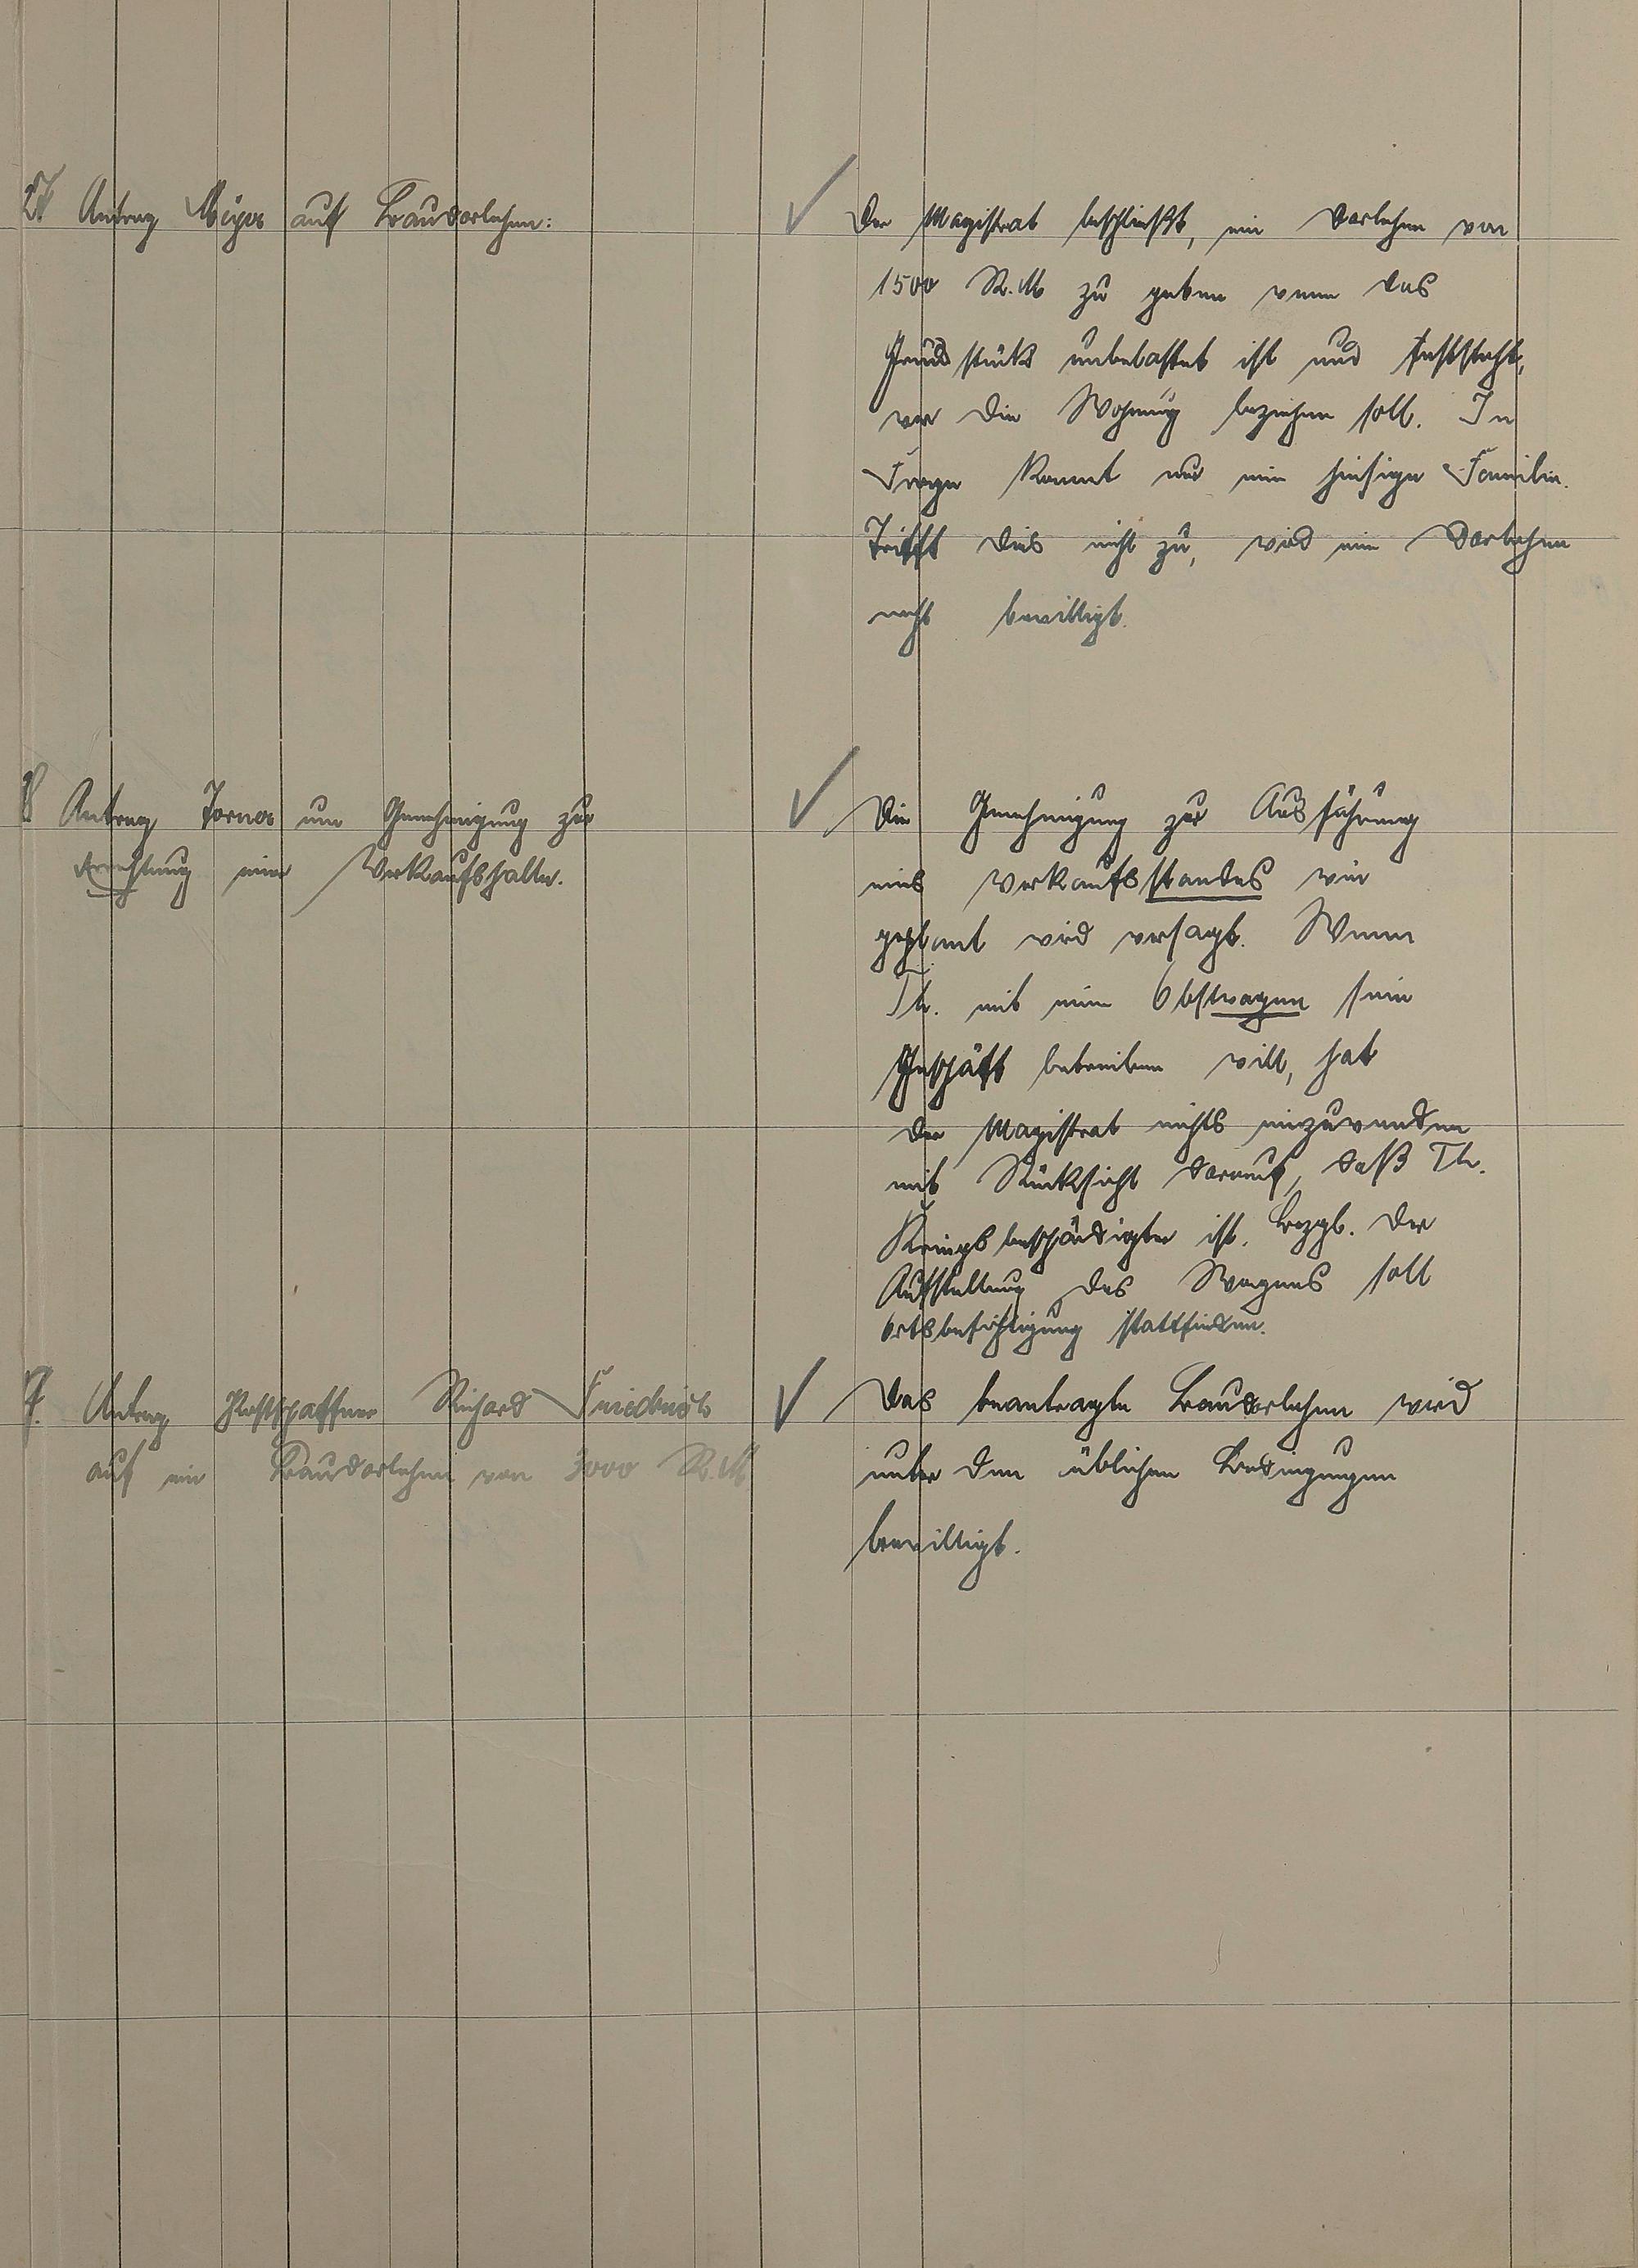 7. Antrag Meyer auf Baudarlehen:
Der Magistrat beschließt, ein Darlehen von
1500 R.M zu geben wenn das
Grundstück unbelastet ist und feststeht,
wer die Wohnung beziehen soll. In
Frage kommt nur eine hiesige Familie.
Trifft dies nicht zu, wird ein Darlehen
nicht bewilligt.
8 Antrag um Genehmigung zur
Errichtung einer Verkaufshalle.
Die Genehmigung zur Ausführung
eines Verkaufsstandes wie
geplant wird versagt. Wenn
Th. mit einem Obstwagen sein
Geschäft betreiben will, hat
der Magistrat nichts einzuwenden
mit Rücksicht darauf, daß Th.
Kriegsbeschädigter ist. Bezgl. der
Aufstellung des Wagens soll
Ortsbesichtigung stattfinden.
9. Antrag Postschaffner Richard Friedrich
auf ein Baudarlehen von 3000 R.M
Das beantragte Baudarlehen wird
unter den üblichen Bedingungen
bewilligt.